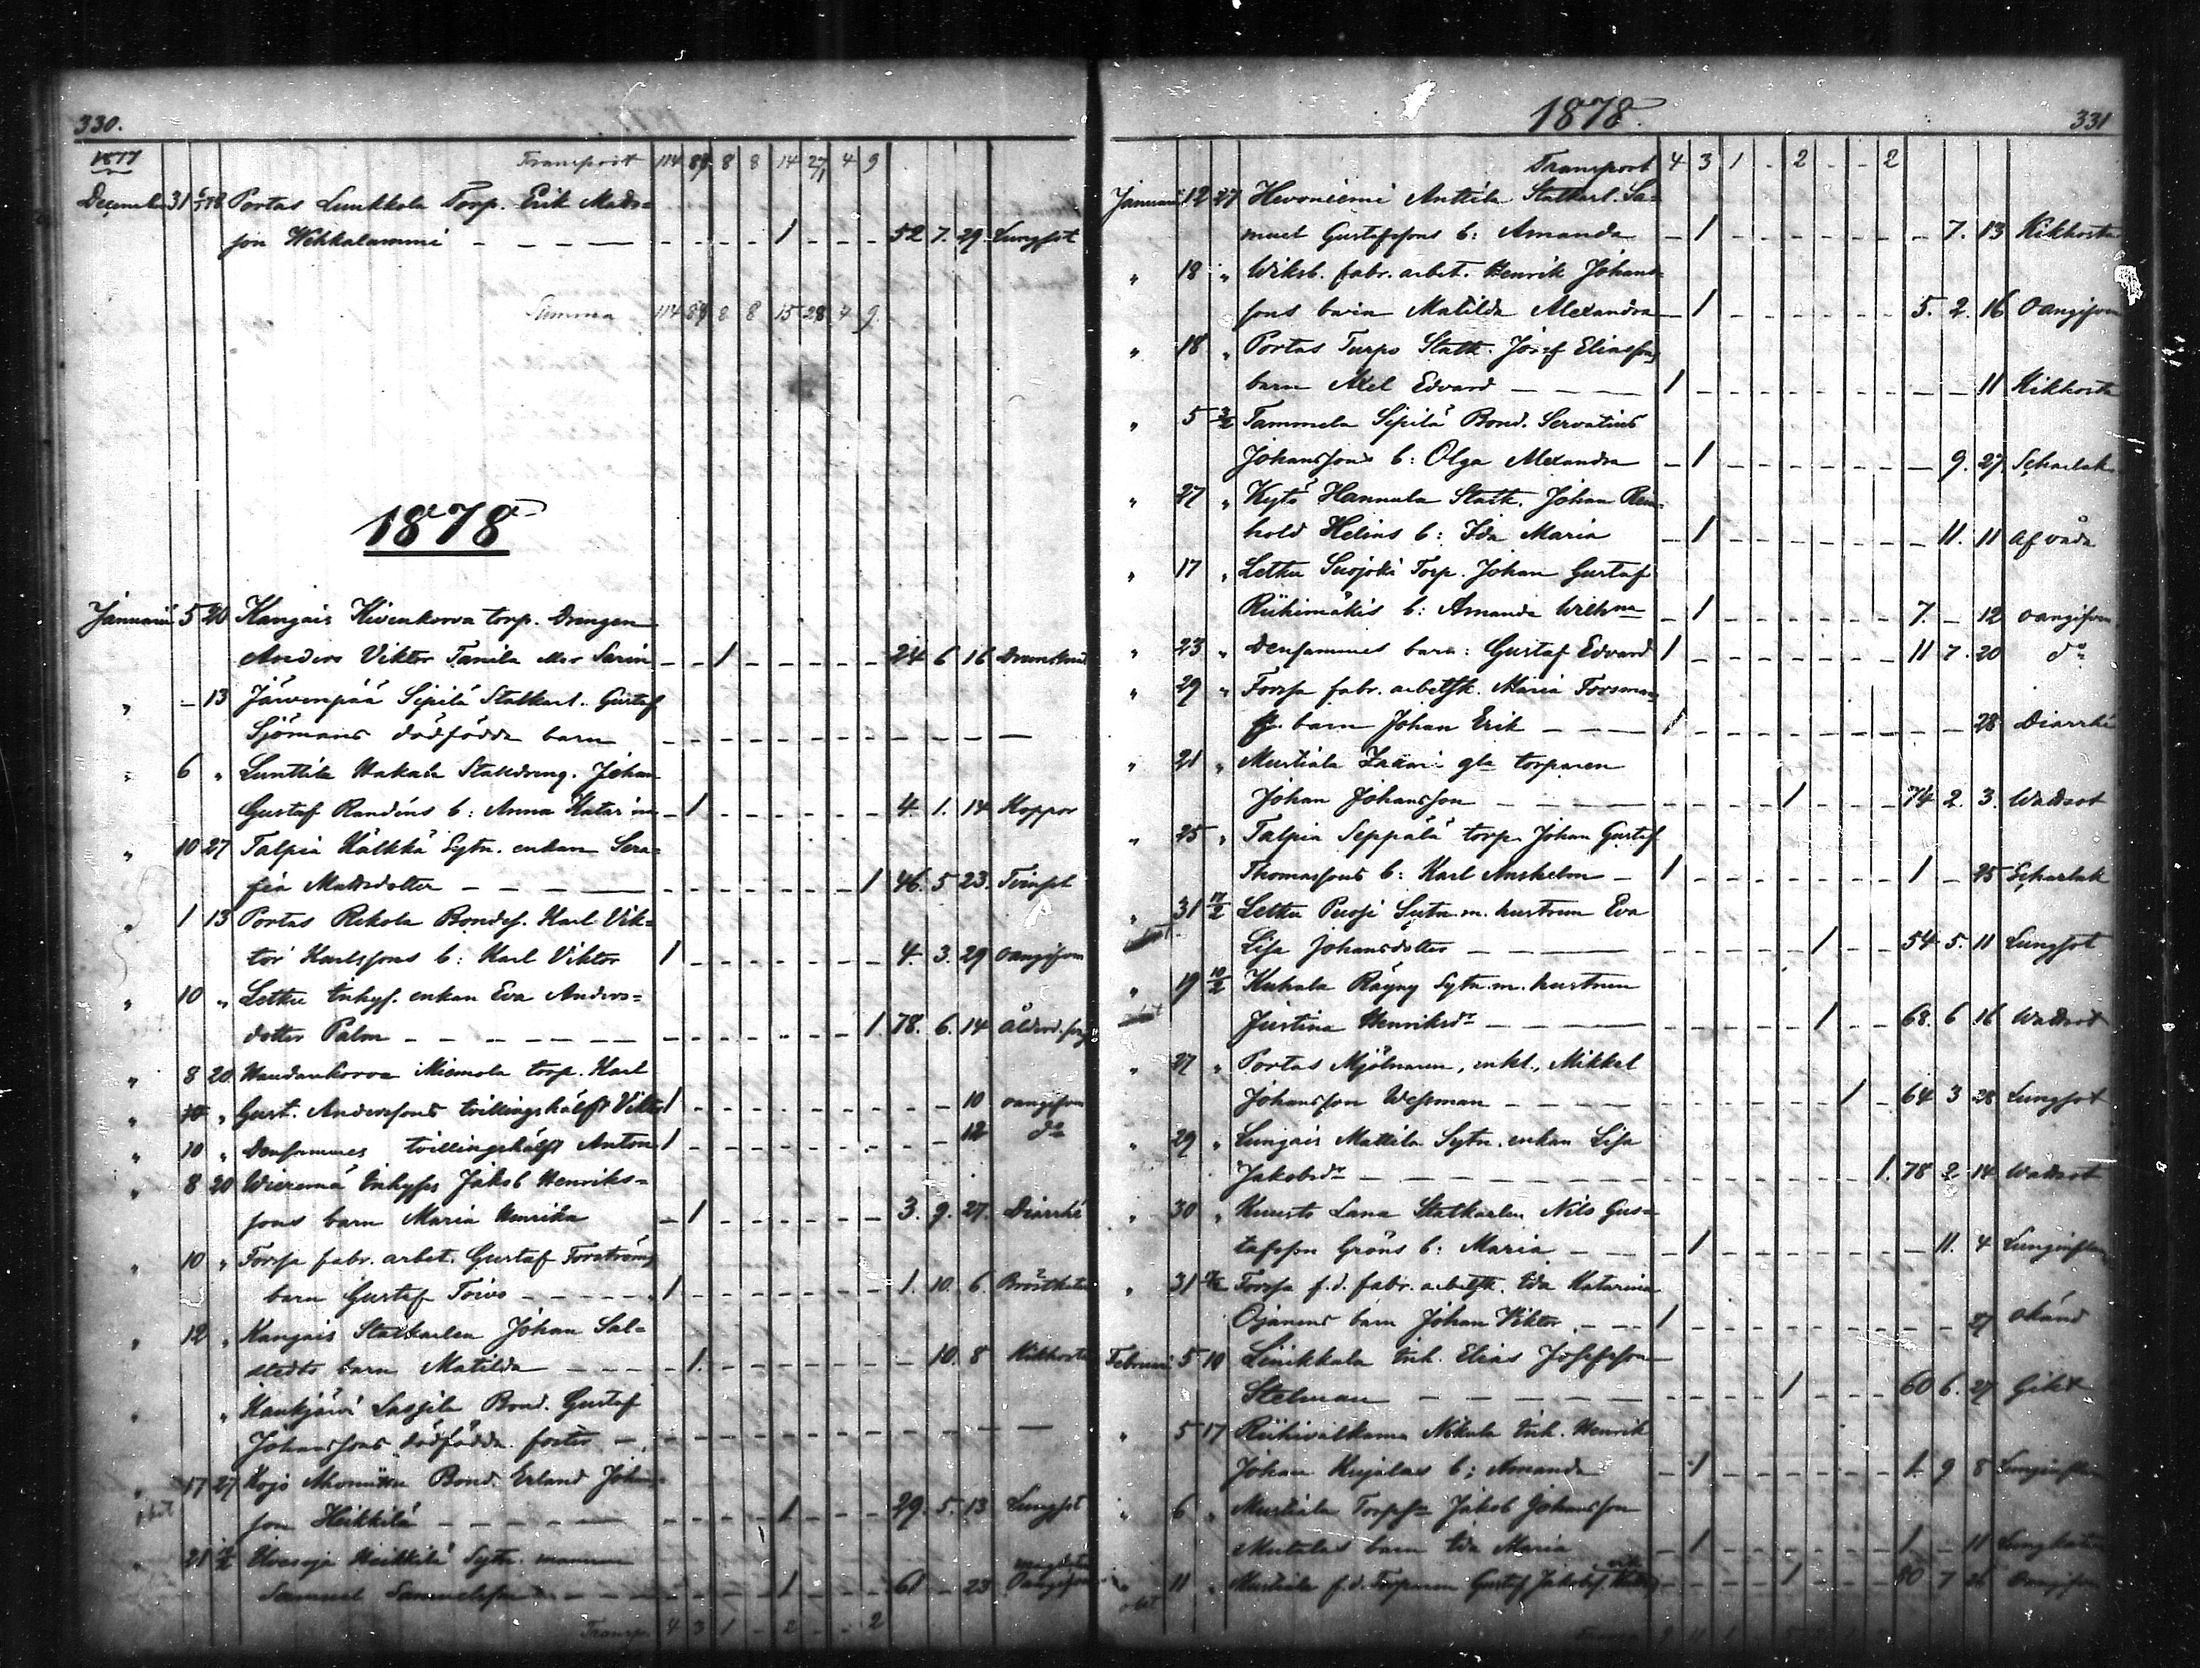 330.
1877 Transport 114 89 8 8 14 27/1 4 9
December 31 Portas Lunkkola Torp. Erik Mads=
son Wehkalammi - - - - 1 - - - 52 7. 29. Lungsot
Summa 114 89 8 8 15 28 4 9.
1878
Januarii 5 20 Kangais Kivenkorva torp. Drengen
Anders Viktor Tanila - - 1 - - - - - 24 6 16
" - 13 Järvenpää Sipilä Statkarl. Gustaf
Sjömans dödfödda barn - - - - - - - -
" 6 " Lunttila Statdreng. Johan
Gustaf Randéns b: Anna Katarina - 1 - - - - - - 4. 1. 14 Koppor
" 10 27 Talpia Kälkkä Sytn. enkan Sera=
fia Mattsdotter - - - - 1 46. 5 23. Tvinsot
" 1 13 Portas Rekola Bondes. Karl Vik=
tor Karlssons b: Karl Viktor 1 - - - - - - - 4. 3. 29 oangifven
" 10 " Letku Inhys. enkan Eva Anders=
dotter Palm - - - - - 1. 78. 6. 14
" 8 20 Haudankorva Miemola torp. Karl
" 10 " Gust. Anderssons tvillingshälft Viktor 1 - - - - - - - - - 10 oangifven
" 10 " Densammes tvillingshälft Anton 1 - - - - - - - - - 12 do
" 8 20 Wieremä Inhyses Jakob Henriks=
sons barn Maria Henrika - 1 - - - - - - 3. 9. 27. Diarrhé
" 10 " Forssa fabr. arbet. Gustaf Forströms
barn Gustaf Toivo - - - - 1 - - - - - - - 1. 10. 6.
" 12 " Kangais Statkarlen Johan Sal=
stedts barn Matilda - - - - 1. - - - - - - - 10. 8 Kikhosta
" " Kaukjärvi Lassila Bond. Gustaf
Johanssons dödfödda foster - - - - - - - -
" 17 27 Kojo Bond. Erland Johans=
son Heikkilä - - - - 1 - - - 29. 5. 13 Lungsot
" 21 Heikkilä Sytn. mannen
Samuel Samuelsson - - - - 1 - - - 61 - 23 Oangifven
Transp. 4 3 1 - 2 - - 2
1878. 331
Transport 4 3 1 - 2 - - 2
Januari 12 27 Hevoniemi Anttila Statkarl. Sa=
muel Gustafssons b: Amanda - 1 - - - - - - - 7. 13 Kikhosta
" 18 " Wiksb. fabr. arbet. Henrik Johans=
sons barn Matilda Alexandra - 1 - - - - - - 5. 2. 16 Oangifven
" 18 " Portas Turpo Statk. Josef Eliassons
barn Axel Edvard - - - 1 - - - - - - - - - 11 Kikhosta
" 5 3/2 Tammela Sipilä Bond. Servatius
Johanssons b: Olga Alexandra - 1 - - - - - - - 9. 27 Scharlak.
" 27 " Kytö Hannula Statk. Johan Rein=
hold Helins b: Ida Maria - 1 - - - - - - - 11. 11 af våda
" 17 " Letku Suojoki Torp. Johan Gustaf
Riihimäkis b: Amanda Wilhna - 1 - - - - - - 7. - 12 oangifven
" 23 " Densammes barn: Gustaf Edvard 1 - - - - - - - 11 7. 20 do
" 29 " Forssa fabr. arbetsk. Maria Forsmans
barn Johan Erik - - - 1 - - - - - - - - - 28 Diarrhé
" 21 " Mustiala Zakari gla torparen
Johan Johansson - - - - 1 - - - 74 2. 3. Wattsot
" 25 " Talpia Seppälä torp. Johan Gustaf
Thomassons b: Karl Anshelm - 1 - - - - - - - 1 - 25 Scharlak
" 31 17/2 Letku Pussi Sytn. m. hustrun Eva
Lisa Johansdotter - - - 1 - - 54 5. 11 Lungsot
" 19 10/2 Kuhala Räyny Sytn. m. hustrun
Justina Henriksdr - - - 1 - - 68. 6 16 Wattsot
" 27 " Portas Mjölnaren, enkl., Mikkel
Johansson Wessman - - - 1 - 64 3 28 Lungsot
" 29 " Lungais Mattila Sytn. enkan Lisa
Jakobsdr - - - - 1. 78 2 14 Wattsot
" 30 " Kuusto Lana Statkarlen Nils Gus=
tafsson Gröns b: Maria - - - 1 - - - - - - - 11. 4 Lunginflam
" 31 Forssa f.d. fabr. arbetsk. Ida Katarina
Ojanens barn Johan Viktor - - - 1 - - - - - - - - - 27 okänd
Februari 5 10 Liukkala Inh. Elias Josefsson
Stelman - - - - 1 - - - 60 6. 27 Gikt
" 5 17 Riihivalkama Nikula Inh. Henrik
Johan Kujalas b: Amanda - 1 - - - - - - 1. 9 8 Lunginflam
" 6 " Mustiala Jakob Johansson
barn Ida Maria - 1 - - - - - - 1 - 11
" 11 " Mustiala f.d. Torparen Gustaf - - - - 1 - - - 80 7 oangifven